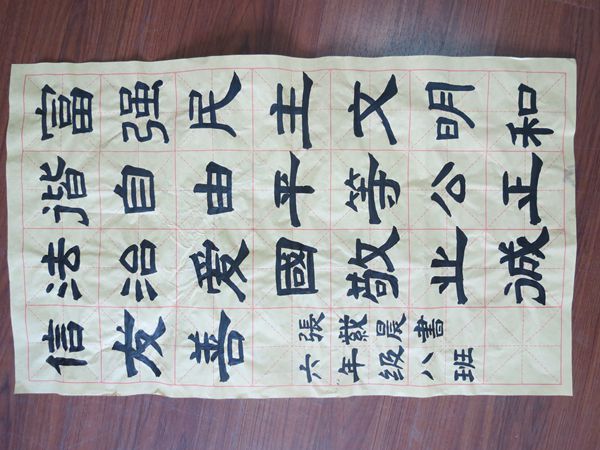 富强民主文明和
谐自由平等公正
法治爱國敬业诚
信友善
張晨書
六年级八班